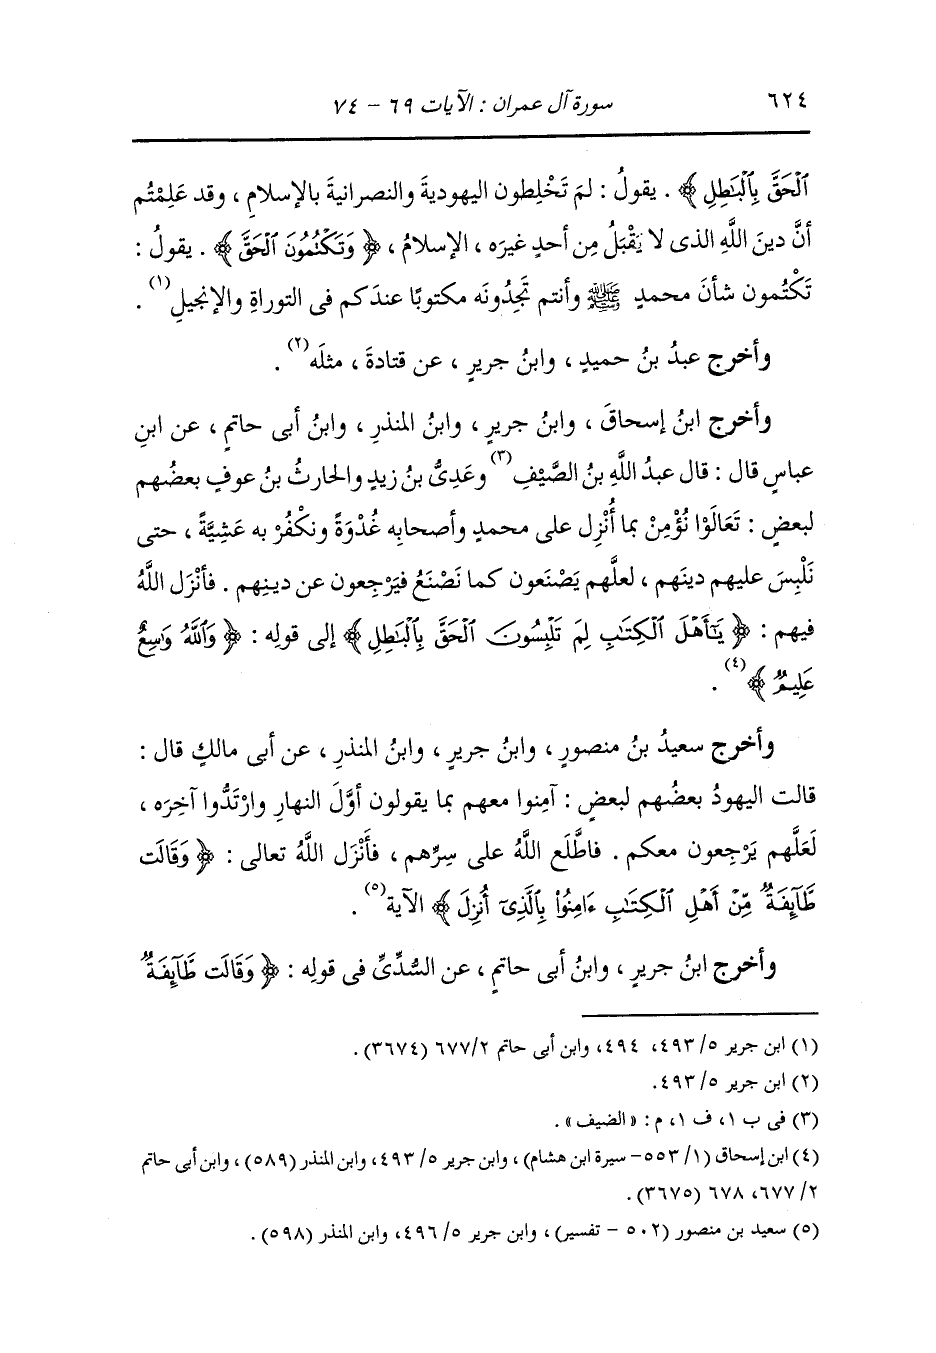 ٦٢٤ سورة آل عمران : الآيات ٦٩ - ٧٤
ٱلْحَقَّ بِٱلْبَٰطِلِ ﴾ . يقولُ : لمَ تَخْلِطون اليهوديةَ والنصرانيةَ بالإسلامِ ، وقد عَلِمْتُم
أنَّ دينَ اللَّهِ الذى لا يَقْبَلُ مِن أحدٍ غيرَه ، الإسلامُ ، ﴿ وَتَكْتُمُونَ ٱلْحَقَّ ﴾ . يقولُ :
تَكْتُمون شأنَ محمدٍ ﷺ وأنتم تَجِدُونَه مكتوبًا عندَكم فى التوراةِ والإنجيلِ(١) .
وأخرج عبدُ بنُ حميدٍ ، وابنُ جريرٍ ، عن قتادةَ ، مثلَه(٢) .
وأخرج ابنُ إسحاقَ ، وابنُ جريرٍ ، وابنُ المنذرِ ، وابنُ أبى حاتمٍ ، عن ابنِ
عباسٍ قال : قال عبدُ اللَّهِ بنُ الصَّيْفِ(٣) وعَدِىُّ بنُ زيدٍ والحارثُ بنُ عوفٍ بعضُهم
لبعضٍ : تَعَالَوْا نُؤْمِنْ بما أُنْزِل على محمدٍ وأصحابِه غُدْوَةً ونكْفُرْ به عَشِيَّةً ، حتى
نَلْبِسَ عليهم دينَهم ، لعلَّهم يَصْنَعون كما نَصْنَعُ فيَرْجِعون عن دينِهم . فأنْزَل اللَّهُ
فيهم : ﴿ يَٰٓأَهْلَ ٱلْكِتَٰبِ لِمَ تَلْبِسُونَ ٱلْحَقَّ بِٱلْبَٰطِلِ ﴾ إلى قولِه : ﴿ وَٱللَّهُ وَٰسِعٌ
عَلِيمٌ ﴾(٤) .
وأخرج سعيدُ بنُ منصورٍ ، وابنُ جريرٍ ، وابنُ المنذرِ ، عن أبى مالكٍ قال :
قالت اليهودُ بعضُهم لبعضٍ : آمِنوا معهم بما يقولون أوَّلَ النهارِ وارْتَدُّوا آخِرَه ،
لَعَلَّهم يَرْجِعون معكم . فاطَّلَع اللَّهُ على سِرِّهم ، فأَنْزَل اللَّهُ تعالى : ﴿ وَقَالَت
طَّآئِفَةٌ مِّنْ أَهْلِ ٱلْكِتَٰبِ ءَامِنُوا۟ بِٱلَّذِىٓ أُنزِلَ ﴾ الآية(٥) .
وأخرج ابنُ جريرٍ ، وابنُ أبى حاتمٍ ، عن السُّدِّىِّ فى قولِه : ﴿ وَقَالَت طَّآئِفَةٌ
(١) ابن جرير ٥/ ٤٩٣، ٤٩٤، وابن أبى حاتم ٦٧٧/٢ (٣٦٧٤) .
(٢) ابن جرير ٥/ ٤٩٣.
(٣) فى ب ١، ف ١، م : « الضيف » .
(٤) ابن إسحاق (١/ ٥٥٣- سيرة ابن هشام) ، وابن جرير ٥/ ٤٩٣، وابن المنذر (٥٨٩) ، وابن أبى حاتم
٢/ ٦٧٧، ٦٧٨ (٣٦٧٥) .
(٥) سعيد بن منصور (٥٠٢ - تفسير) ، وابن جرير ٥/ ٤٩٦، وابن المنذر (٥٩٨) .